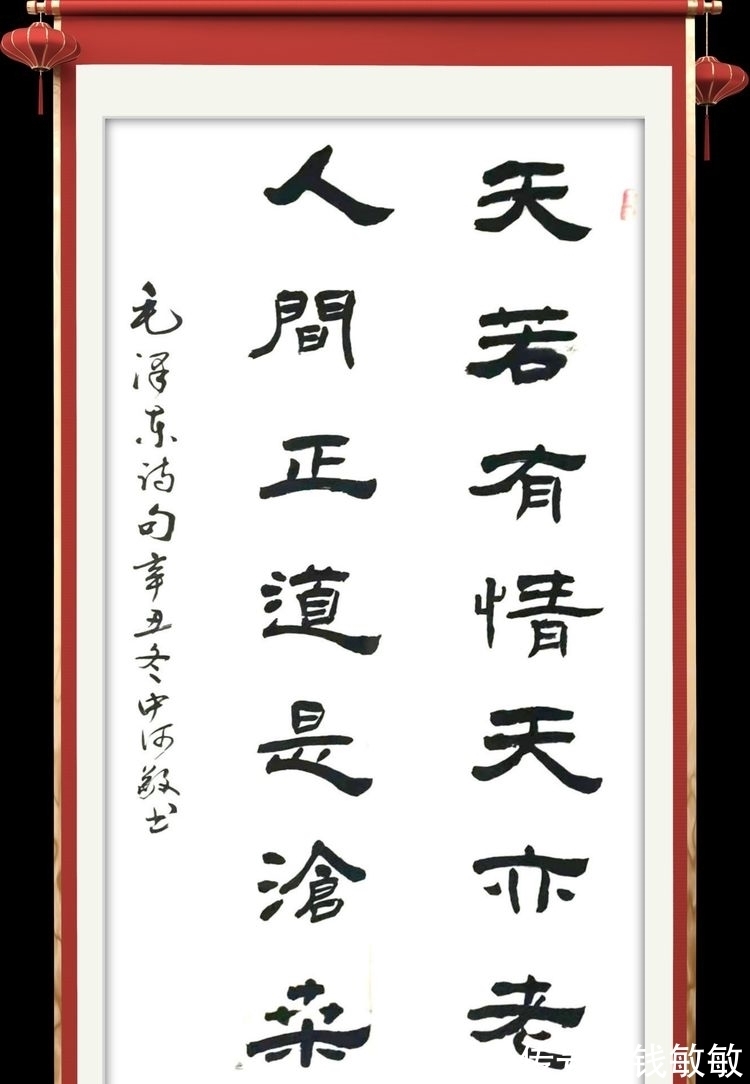 天若有情天亦老
人間正道是滄桑
毛泽东诗句辛丑冬中河敬书
钱敏敏